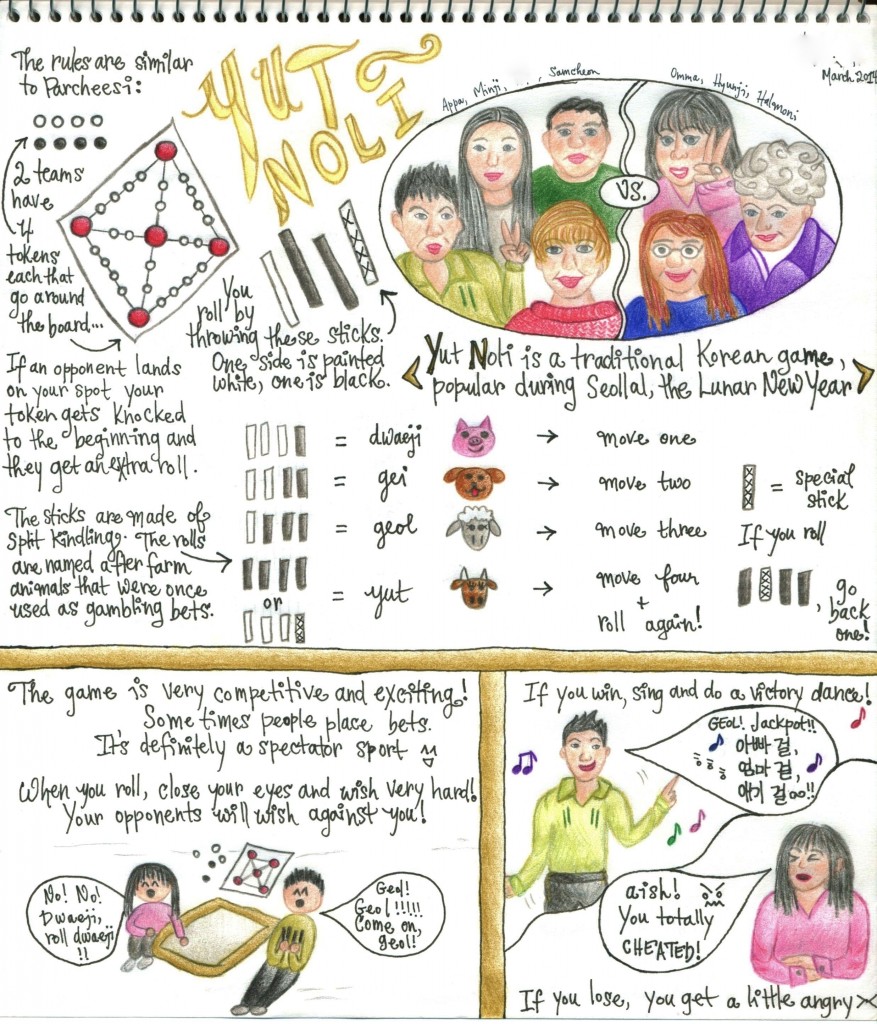 The rules are similar
to Parcheesi:
YUT
NOLI
Appa, Minji, . . , Samcheon
Omma, Hyunji, Halmoni
March 2014
VS.
2 teams
have
4
tokens
each that
go around
the board...
You
roll by
throwing these sticks.
One side is painted
white, one is black.
< Yut Noli is a traditional Korean game,
popular during Seollal, the Lunar New Year >
If an opponent lands
on your spot your
token gets knocked
to the beginning and
they get an extra roll.
The sticks are made of
split kindling. The rolls
are named after farm
animals that were once
used as gambling bets.
= dwaeji → move one
= gei → move two
= geol → move three
or
= yut → move four
+
roll again!
= special
stick
If you roll
, go
back
one!
The game is very competitive and exciting!
Sometimes people place bets.
It's definitely a spectator sport
When you roll, close your eyes and wish very hard!
Your opponents will wish against you!
No! No!
Dwaeji,
roll dwaeji
!!
Geol!
Geol!!!!!
Come on,
geol!
If you win, sing and do a victory dance!
GEOL! Jackpot!!
아빠 걸,
엄마 걸,
애기 걸∞!!
aish!
You totally
CHEATED!
If you lose, you get a little angry